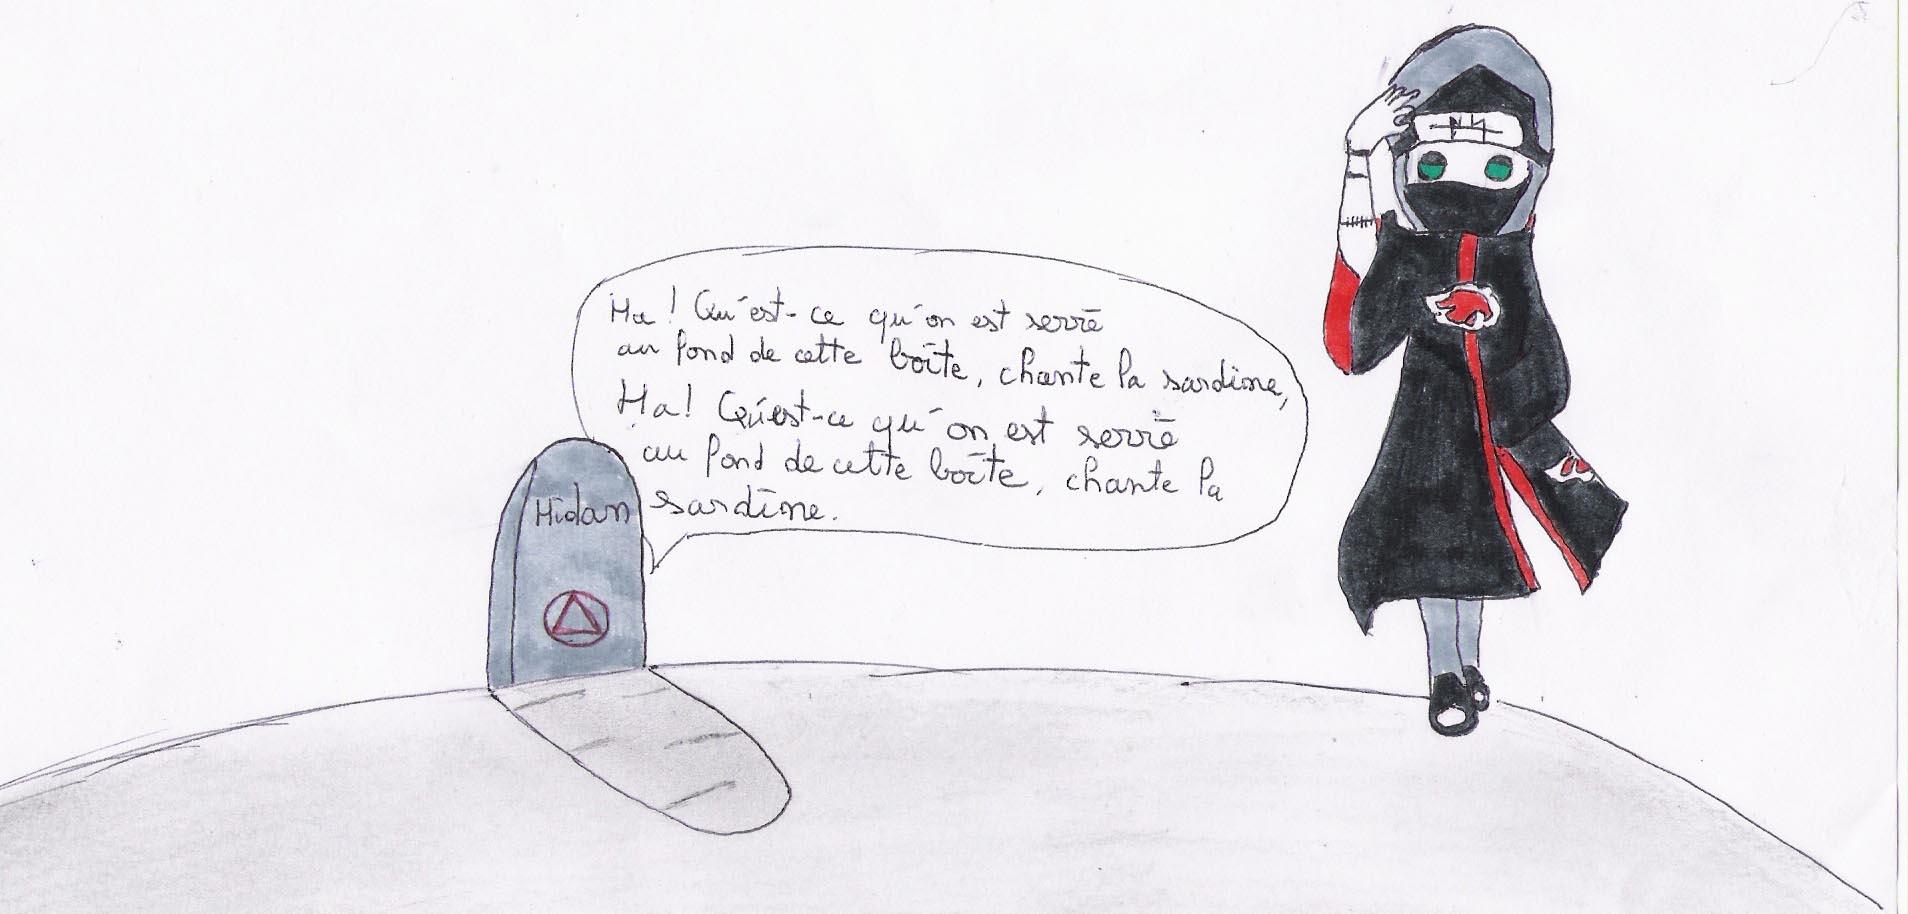 Ha ! Qu'est-ce qu'on est serré
au fond de cette boîte, chante la sardine,
Ha ! Qu'est-ce qu'on est serré
au fond de cette boîte, chante la
sardine.
Hidan